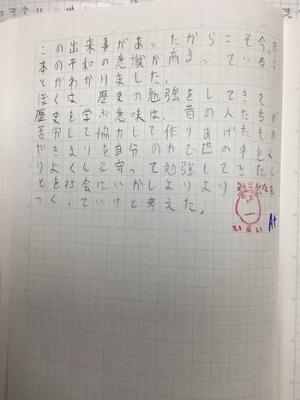 この出来事があったからこそ今、日
本の平和の意識が高まっている
とがわかりました。
ぼくは、歴史の勉強をしてきて
歴史を学ぶ意味は、昔の人たち
苦労して協力して作りあげたも
がきまりを自分の力で世の中と
りよくくる守って勉強してきた
とを社会にいかしよりより
つくっていけと考えた。
A+